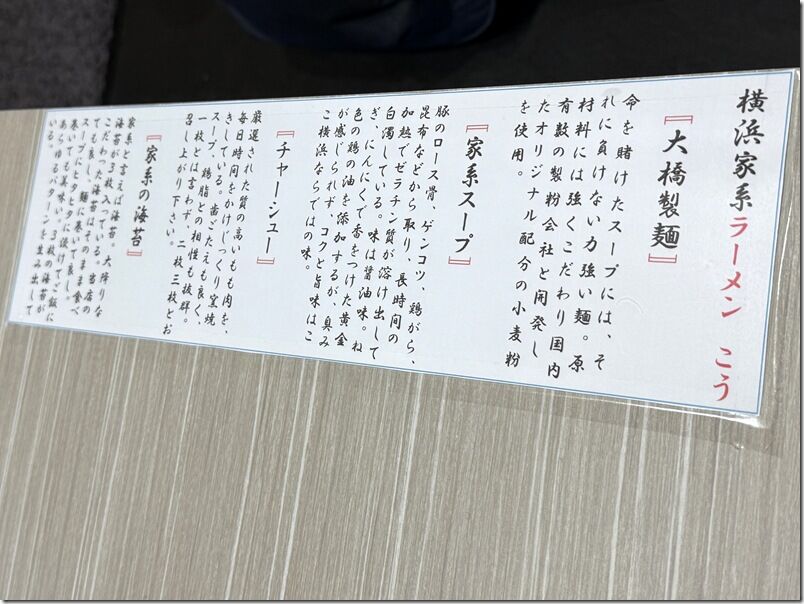 横浜家系ラーメン こう
【大橋製麺】
命を賭けたスープには、そ
れに負けない力強い麺。原
材料には強くこだわり国内
有数の製粉会社と開発し
たオリジナル配分の小麦粉
を使用。
【家系スープ】
豚のロース骨、ゲンコツ、鶏がら、
昆布などから取り、長時間の
加熱でゼラチン質が溶け出して
白濁している。味は醤油味。ね
ぎ、にんにくで香をつけた黄金
色の鶏の油を添加するが、臭み
が感じられず、コクと旨味はこ
こ横浜ならではの味。
【チャーシュー】
厳選された質の高いもも肉を、
毎日時間をかけじっくり窯焼
きしている。歯ごたえも良く、
スープ、鶏脂との相性も抜群。
一枚とは言わず、二枚三枚とお
召し上がり下さい。
【家系の海苔】
家系と言えば海苔。大降りな
海苔が3枚入っている。当店の
こだわった海苔はそのまま食べ
ても良し、麺に巻いて良し。
スープにヒタヒタに漬けてご飯に
巻いても美味い。3枚の海苔が
あらゆるパターンを生み出して
いる。